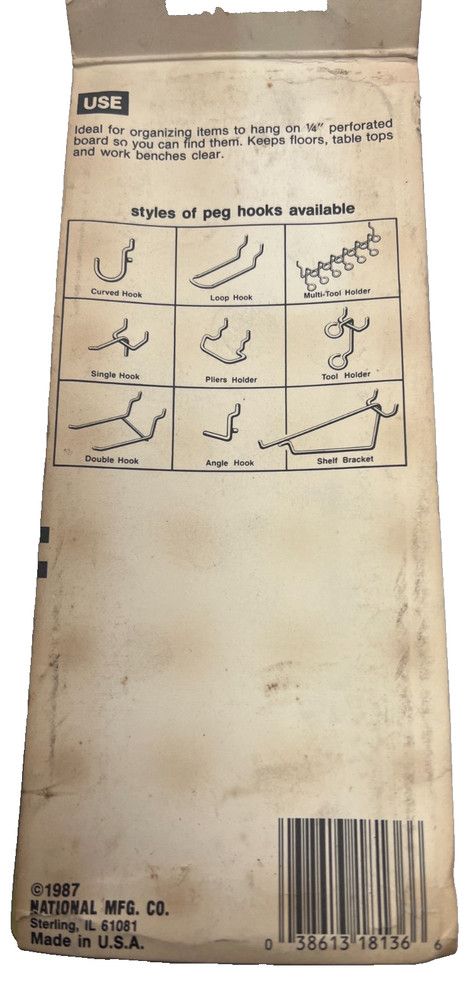 USE
Ideal for organizing items to hang on ¼" perforated
board so you can find them. Keeps floors, table tops
and work benches clear.
styles of peg hooks available
Curved Hook
Loop Hook
Multi-Tool Holder
Single Hook
Pliers Holder
Tool Holder
Double Hook
Angle Hook
Shelf Bracket
©1987
NATIONAL MFG. CO.
Sterling, IL 61081
Made in U.S.A.
0 38613 18136 6